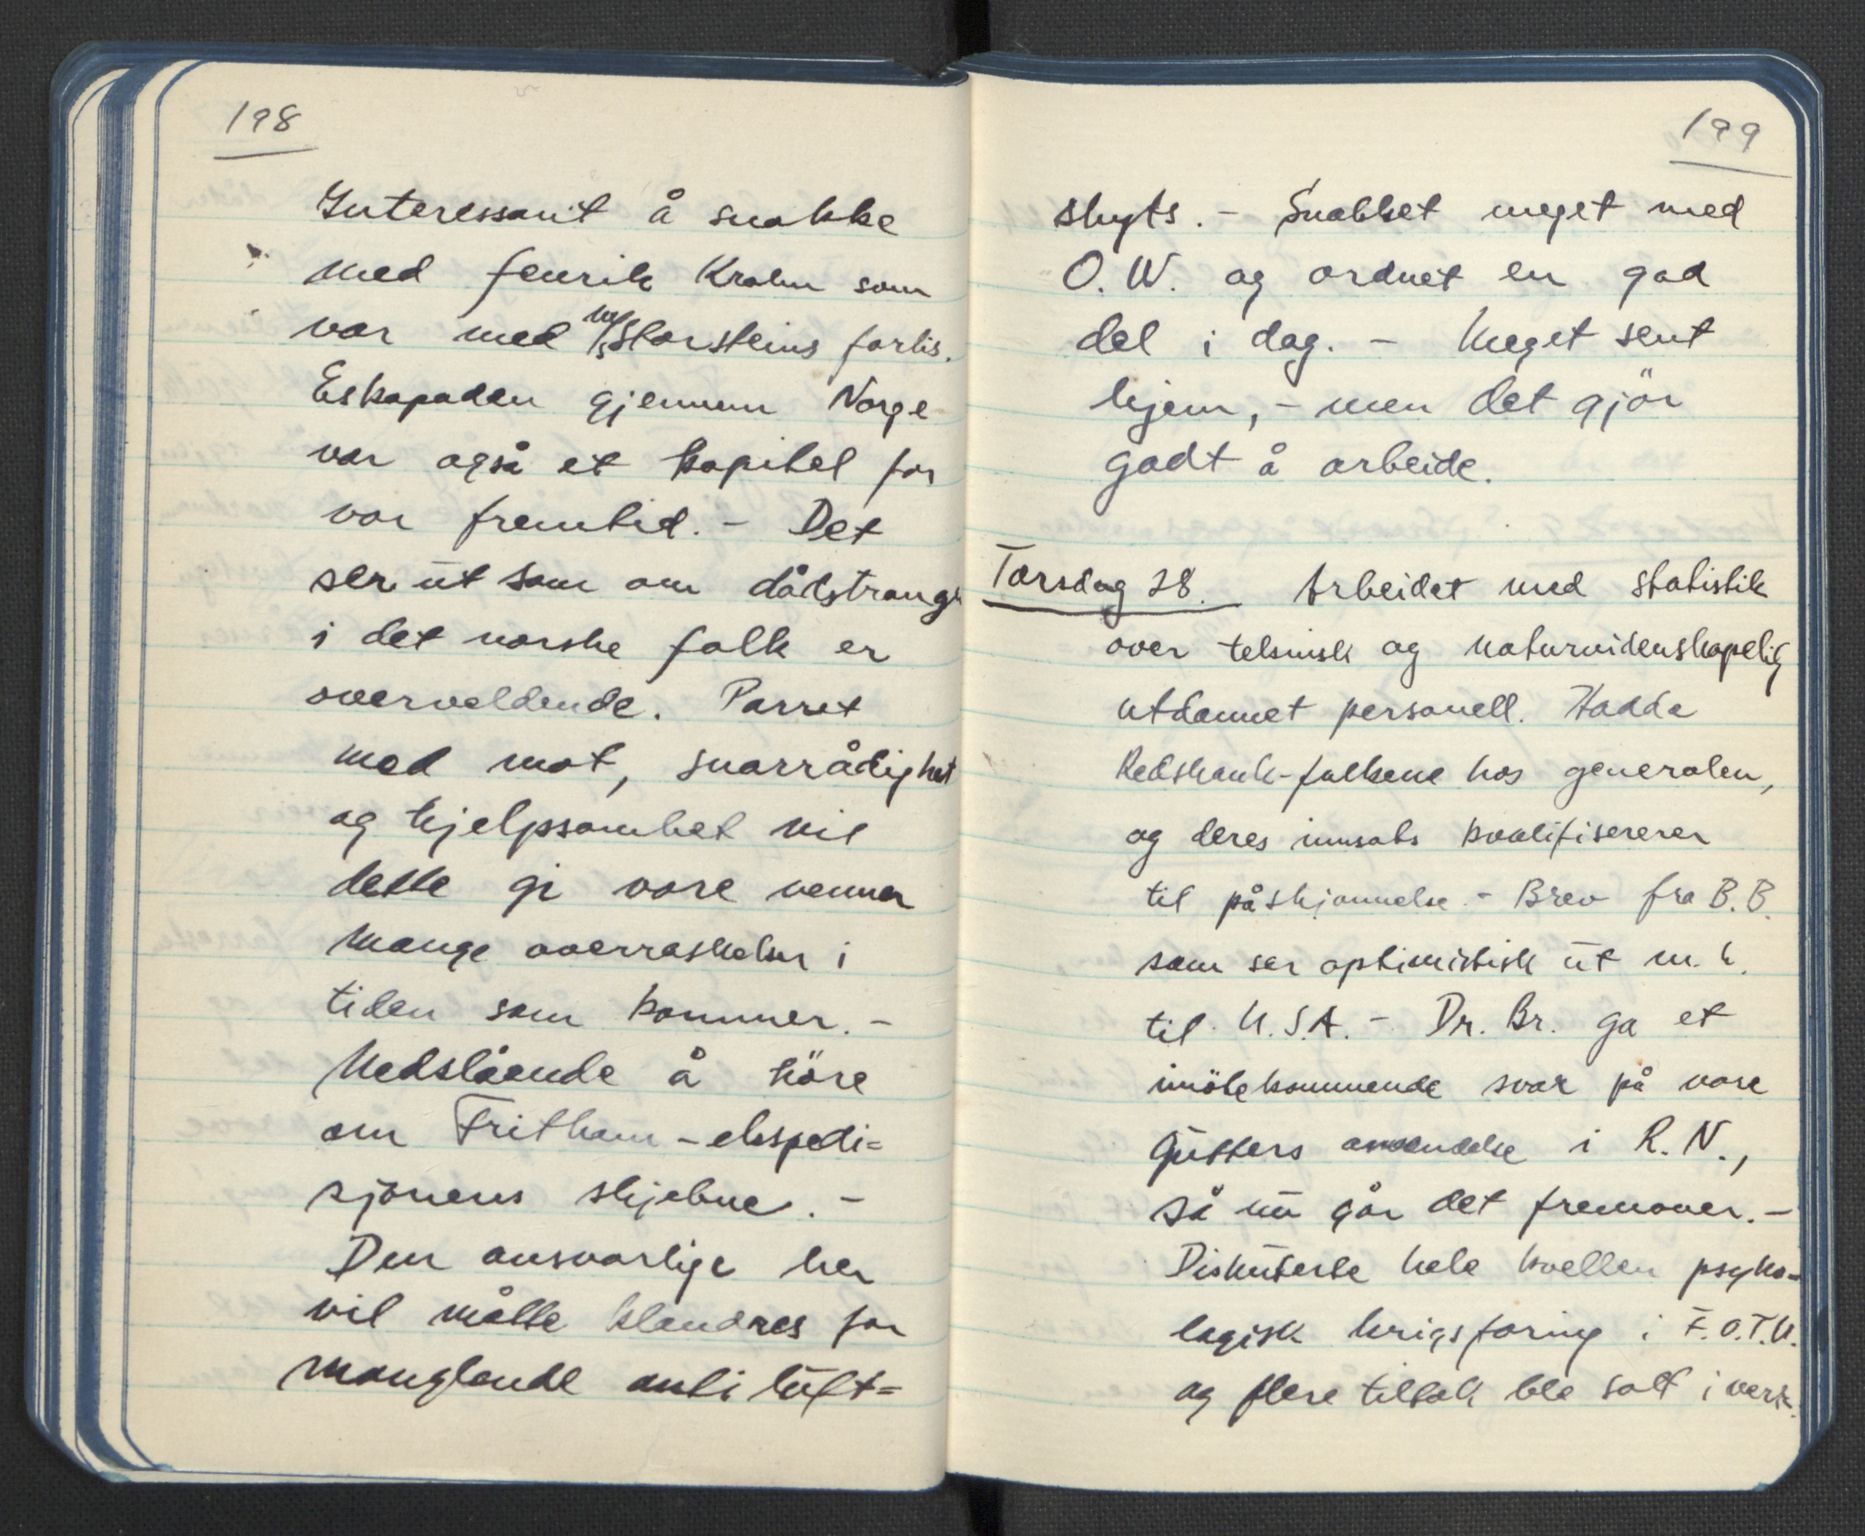 198
Interessant å snakke
med fenrik Krohn som
var med M/S Storsteins forlis.
Eskapaden gjennem Norge
var også et kapitel for
vor fremtid. - Det
ser ut som om dådstrang
i det norske folk er
overveldende. Parret
med mot, snarrådighet
og hjelpsomhet vil
dette gi vore venner
mange overraskelser i
tiden som kommer. -
Nedslående å höre
om Fritham-ekspedi=
sjonens skjebne. -
Den ansvarlige her
vil måtte klandres for
manglende anti luft=
199
skyts. - Snakket meget med
O. W. og ordnet en god
del i dag. - Meget sent
hjem, - men det gjör
godt å arbeide.
Torsdag 28. Arbeidet med statistik
over teknisk og naturvidenskapelig
utdannet personell. Hadde
Redshank-folkene hos generalen,
og deres innsats kvalifiserer
til påskjönnelse. - Brev fra B.B.
som ser optimistisk ut m. h.
til U.S.A. - Dr. Br. ga et
imötekommende svar på vore
gutters anvendelse i R.N.,
så nu går det fremover. -
Diskuterte hele kvellen psyko=
logisk krigsföring i F.O.T.U.
og flere tiltak ble satt i verk.